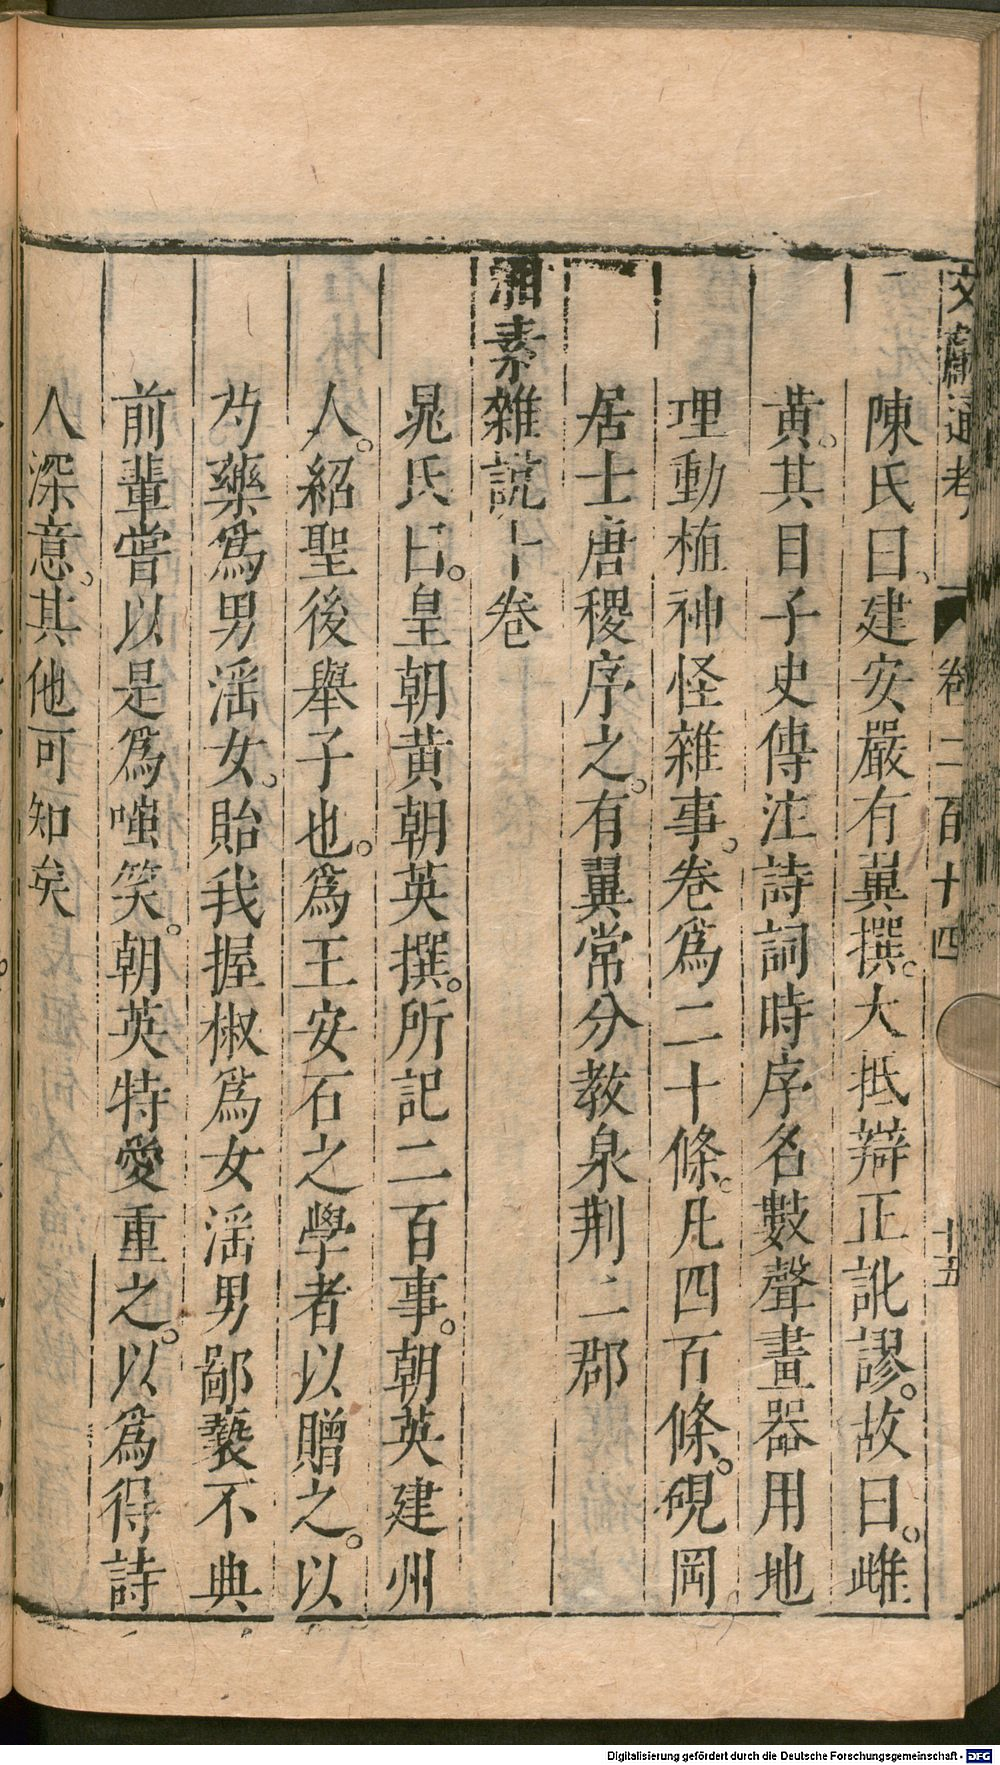 文獻通考 卷二百十四 十五
陳氏曰建安嚴有翼撰。大抵辯正訛謬。故曰。雌
黃。其目子史傳注詩詞時序名數聲畫器用地
理動植神怪雜事。卷爲二十條。凡四百條。硯岡
居士唐稷序之。有翼常分教泉荆二郡
湘素雜説十卷
晁氏曰。皇朝黄朝英撰。所記二百事。朝英建州
人。紹聖後舉子也。爲王安石之學者以贈之。以
芍藥爲男滛女。貽我握椒爲女滛男鄙褻不典
前輩嘗以是爲嗤笑。朝英特愛重之。以爲得詩
人深意。其他可知矣
Digitalisierung gefördert durch die Deutsche Forschungsgemeinschaft - DFG